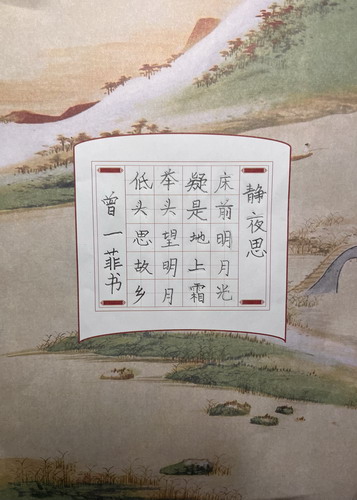 静夜思
床前明月光
疑是地上霜
举头望明月
低头思故乡
曾一菲书